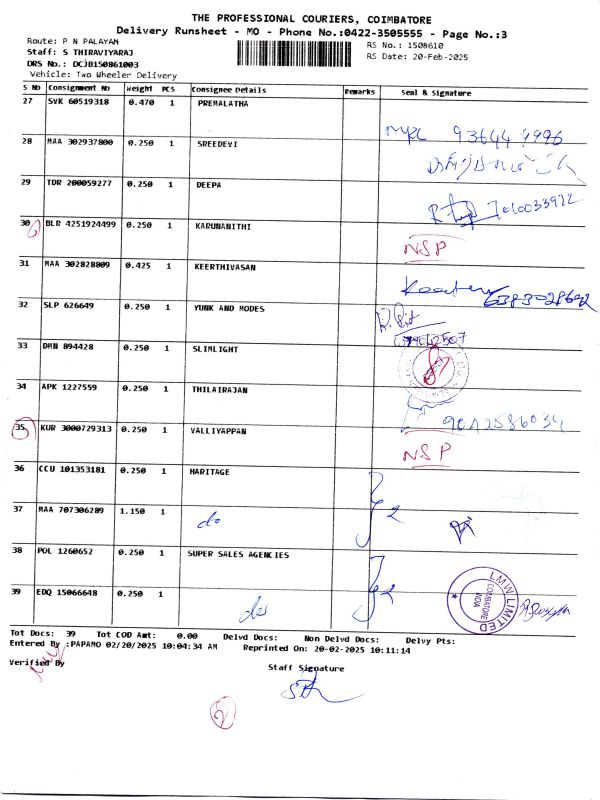 THE PROFESSIONAL COURIERS, COIMBATORE
Delivery Runsheet - MO - Phone No.:0422-3505555 - Page No.:3
Route: P N PALAYAM
RS No.: 1508610
Staff: S THIRAVIYARAJ
RS Date: 20-Feb-2025
DRS No.: DCJB150861003
Vehicle: Two Wheeler Delivery
S No Consignment No Weight PCS Consignee Details Remarks Seal & Signature
27 SVK 60519318 0.470 1 PREMALATHA
28 MAA 302937800 0.250 1 SREEDEVI
29 TDR 200059277 0.250 1 DEEPA
30 BLR 4251924499 0.250 1 KARUNANITHI NSP
31 MAA 302828809 0.425 1 KEERTHIVASAN
32 SLP 626649 0.250 1 YUNK AND MODES
33 DMN 894428 0.250 1 SLIMLIGHT
34 APK 1227559 0.250 1 THILAIRAJAN
35 KUR 3000729313 0.250 1 VALLIYAPPAN NSP
36 CCU 101353181 0.250 1 HARITAGE
37 MAA 707306289 1.150 1 do
38 POL 1260652 0.250 1 SUPER SALES AGENCIES
39 EDQ 15066648 0.250 1 do
LMW LIMITED
COIMBATORE
INDIA
Tot Docs: 39 Tot COD Amt: 0.00 Delvd Docs: Non Delvd Docs: Delvy Pts:
Entered By :PAPAMO 02/20/2025 10:04:34 AM Reprinted On: 20-02-2025 10:11:14
Verified By Staff Signature
2